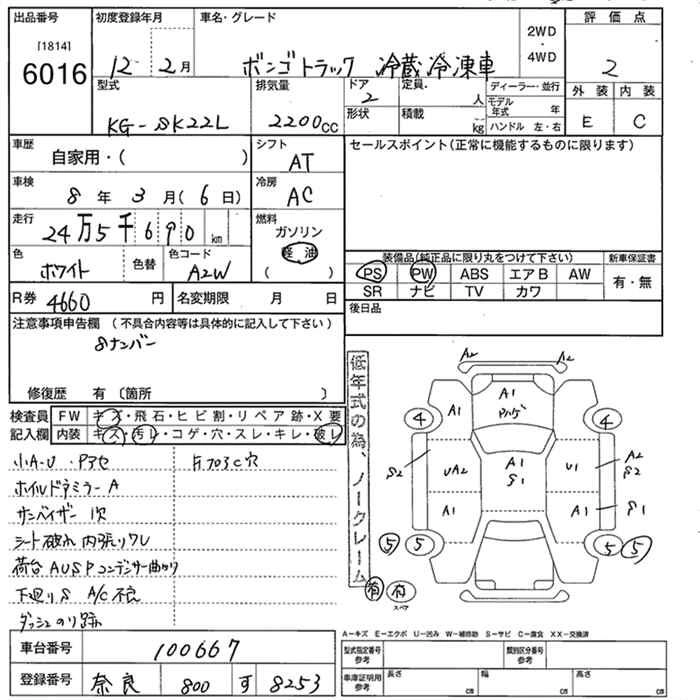 出品番号 初度登録年月 車名・グレード 評価点
[1814]
6016
12 2月 ボンゴトラック 冷蔵冷凍車 2WD・4WD 2
型式 排気量 ドア 定員 ディーラー・並行 外装 内装
KG-SK22L 2200cc 2 人 モデル年式 年 E C
形状 積載 kg ハンドル 左・右
車歴 シフト セールスポイント(正常に機能するものに限ります)
自家用・( ) AT
車検 冷房
8年3月(6日) AC
走行 燃料
24万5千690km ガソリン
軽油
( )
色 色替 色コード
ホワイト A2W
装備品(純正品に限り丸をつけて下さい) 新車保証書
PS PW ABS エアB AW 有・無
SR ナビ TV カワ
R券 4660円 名変期限 月 日 後日品
注意事項申告欄 (不具合内容等は具体的に記入して下さい)
8ナンバー
修復歴 有〔箇所 〕
検査員記入欄 FW キズ・飛石・ヒビ割・リペア跡・X要
内装 キズ・汚レ・コゲ・穴・スレ・キレ・破レ
小A-U・Pアセ
ホイル ドアミラーA
サンバイザー
シート破れ 内張りワレ
荷台AUSP コンデンサー曲がり
下廻りS A/C不良
ダッシュのり跡
低年式の為、ノークレーム
A2 A2
A1
A1 A1
4 4
S2 UA2 A1 S1 U1 A2 S2
A1 A1 S1
5 5 5 5
有 有
スペア
A-キズ E-エクボ U-凹み W-補修跡 S-サビ C-腐食 XX-交換済
車台番号 100667
登録番号 奈良 800 す 8253
型式指定番号 参考 類別区分番号 参考
車庫証明用 参考 長さ cm 幅 cm 高さ cm